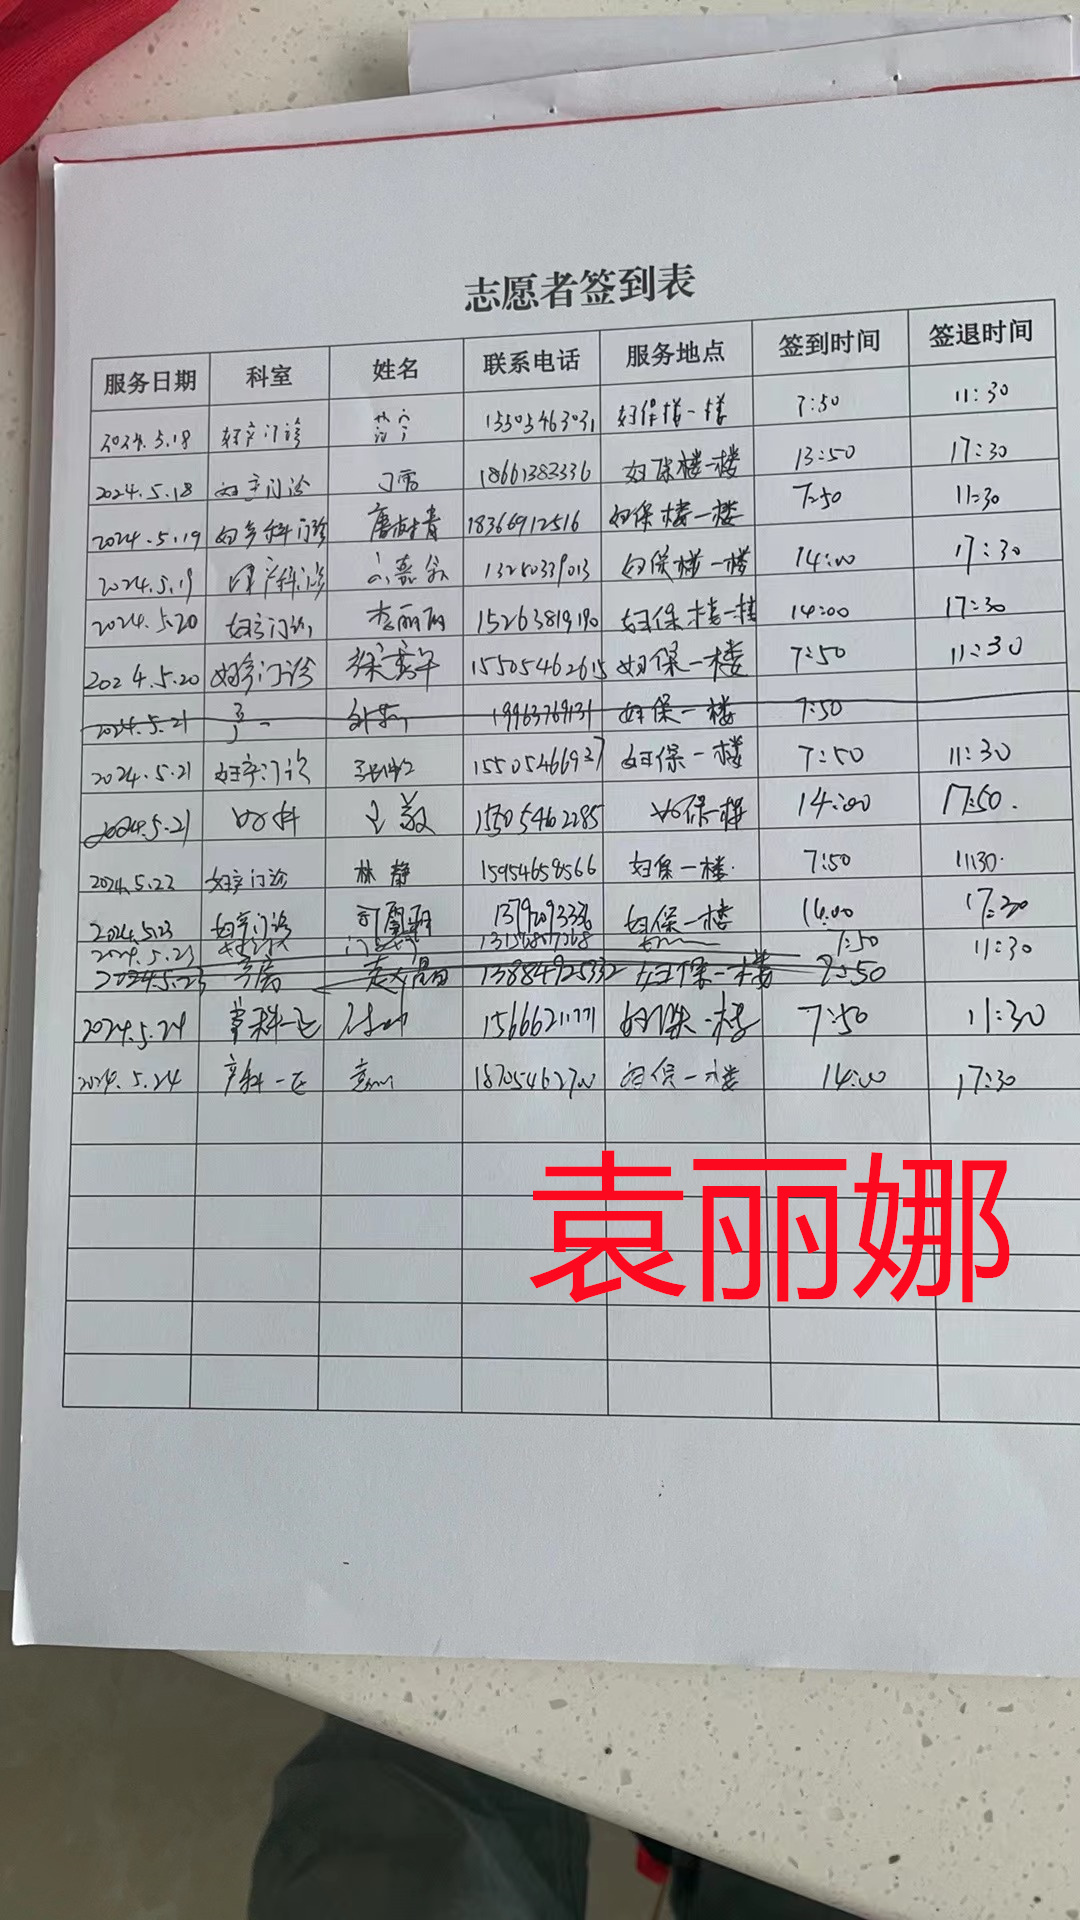 志愿者签到表
服务日期 科室 姓名 联系电话 服务地点 签到时间 签退时间
2024.5.18 妇产门诊 妇保楼一楼 7:50 11:30
2024.5.18 妇产门诊 18661383336 妇保楼一楼 13:50 17:30
2024.5.19 妇产科门诊 唐树青 18366912516 妇保楼一楼 7:50 11:30
2024.5.19 13280339013 妇保楼一楼 14:00 17:30
2024.5.20 妇产门诊 李丽丽 15263819190 妇保楼一楼 14:00 17:30
2024.5.20 妇产门诊 15505462615 妇保一楼 7:50 11:30
2024.5.21 妇保一楼 7:50
2024.5.21 妇产门诊 15505466937 妇保一楼 7:50 11:30
2024.5.21 妇科 15505462285 妇保一楼 14:00 17:50.
2024.5.22 妇产门诊 林静 15954658566 妇保一楼. 7:50 11:30.
2024.5.23 妇产门诊 妇保一楼 14:00 17:30
2024.5.23 7:50 11:30
2024.5.23 13884925332 妇保一楼 7:50
2024.5.24 15666211771 妇保一楼 7:50 11:30
2024.5.24 产科一区 18705462700 妇保一楼 14:00 17:30
袁丽娜